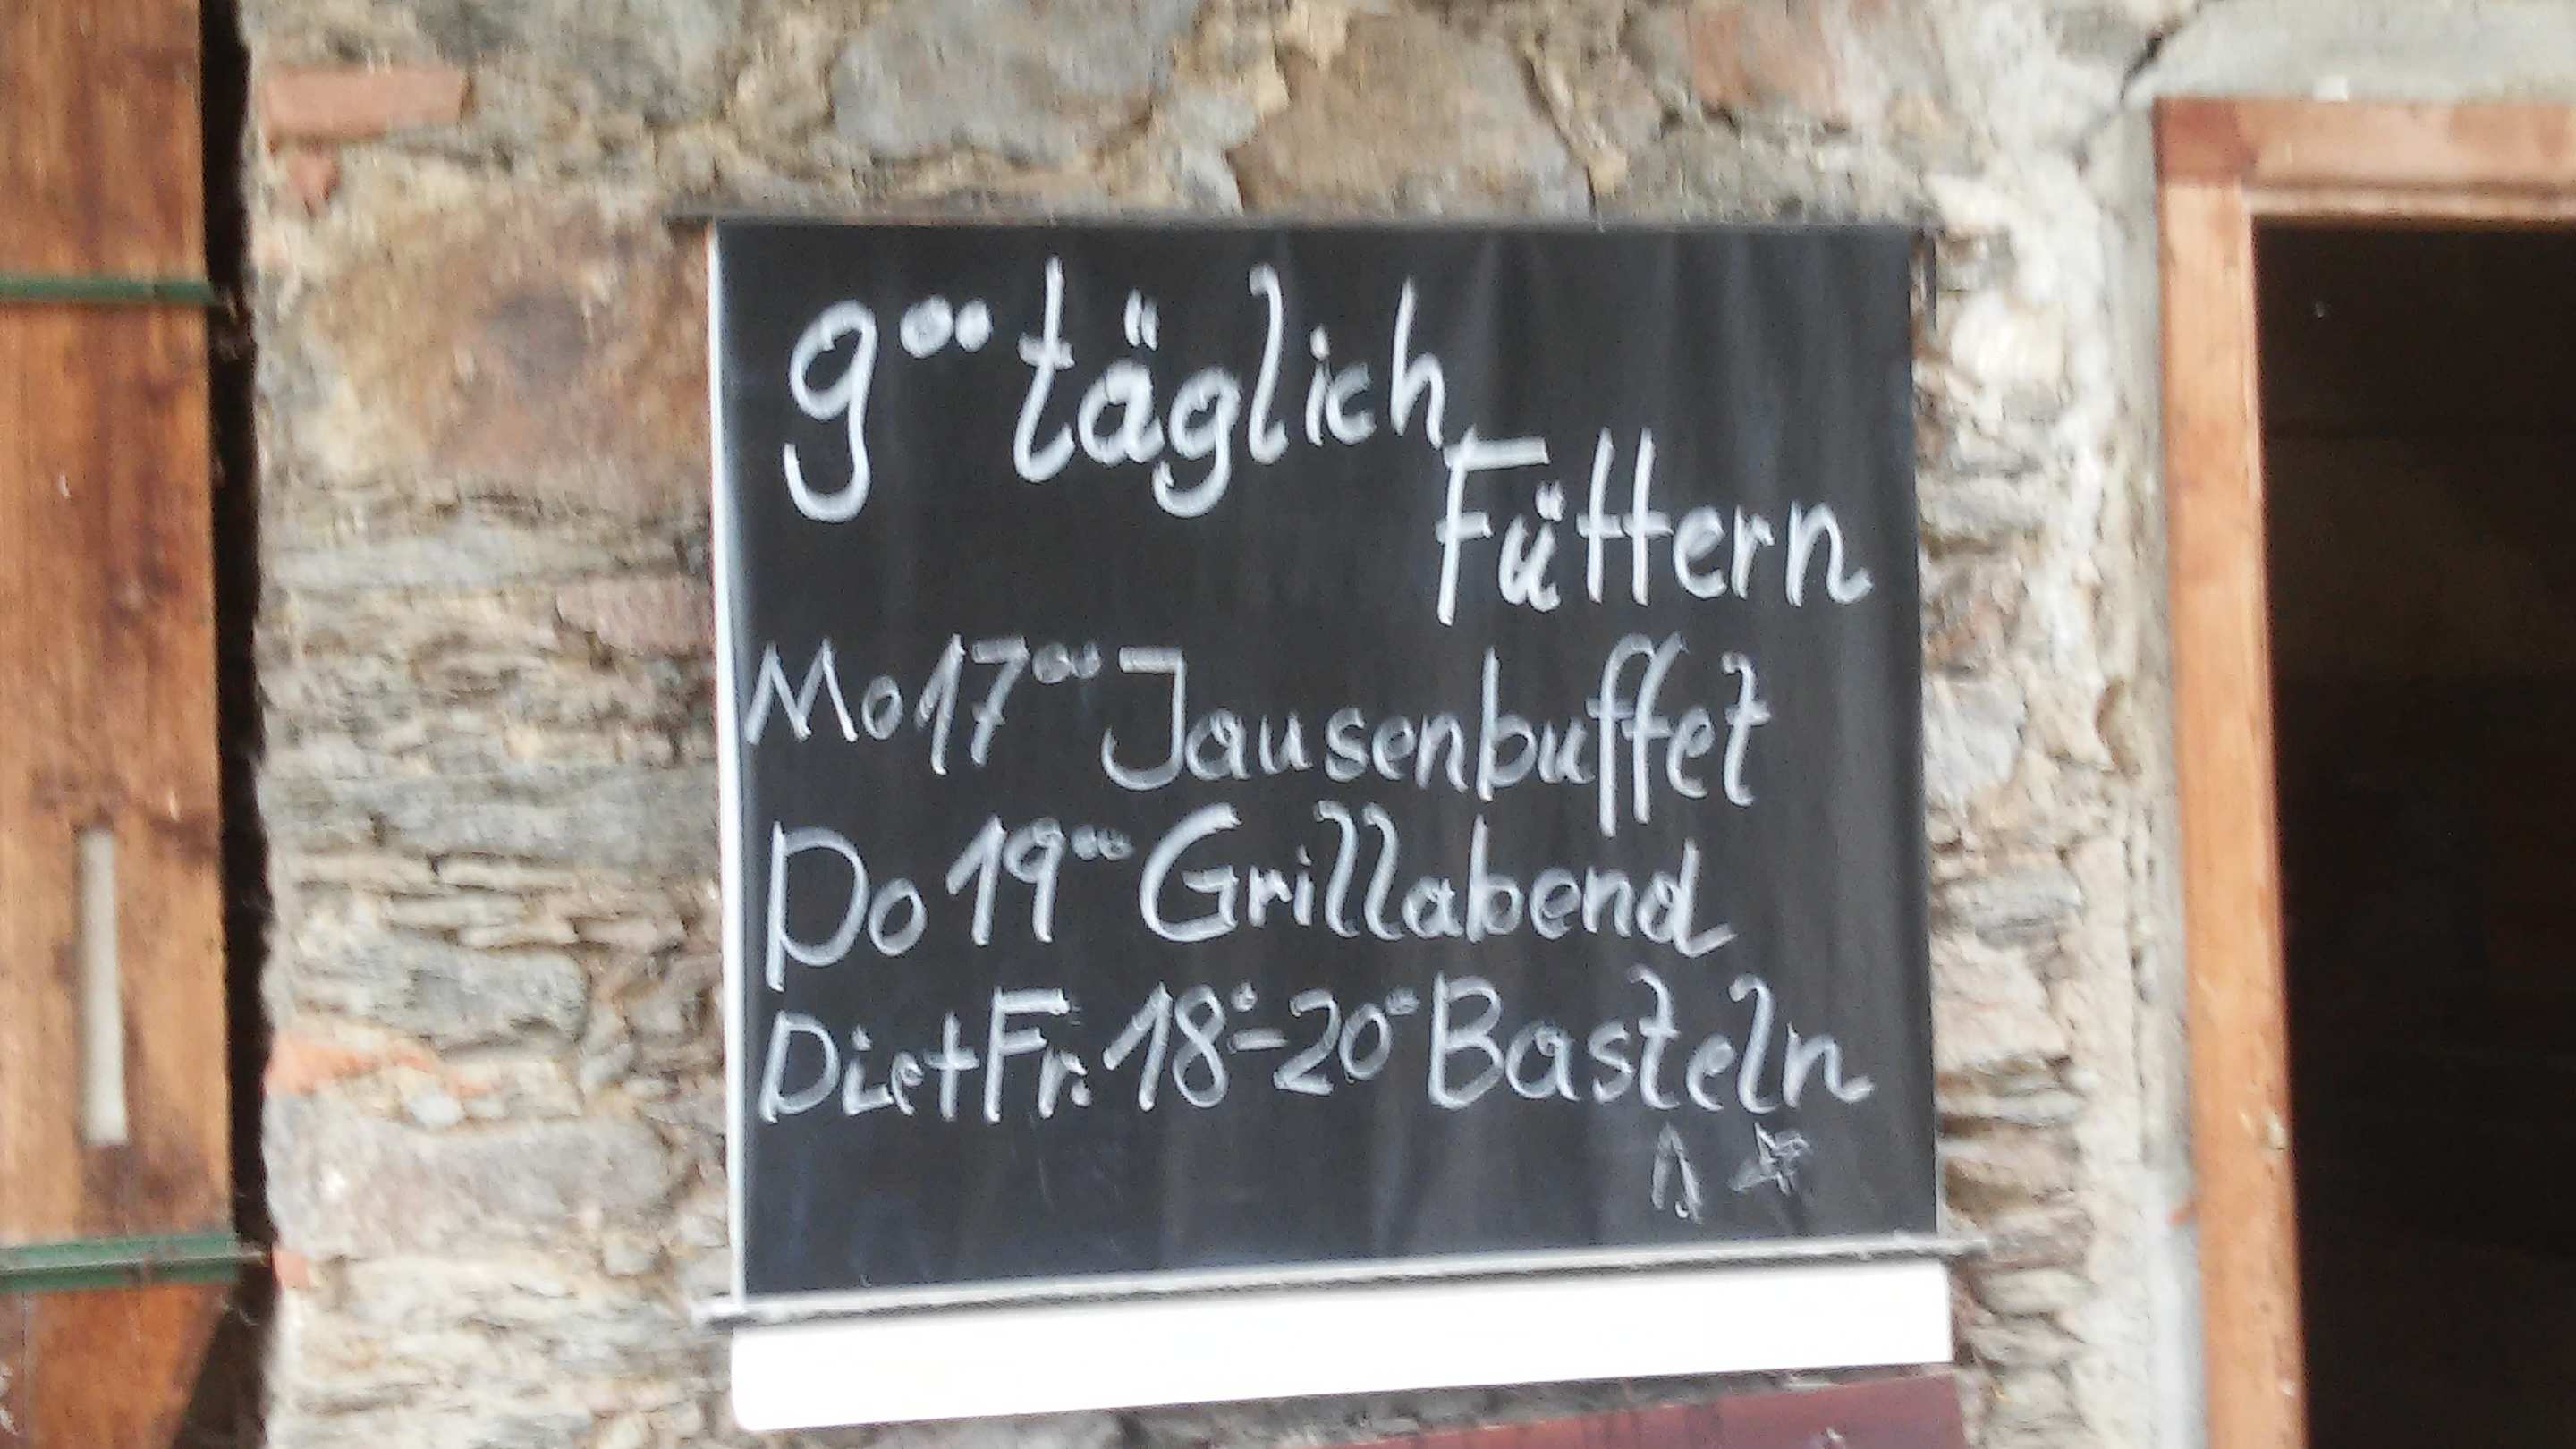 9°° täglich
Füttern
Mo 17°° Jausenbuffet
Do 19°° Grillabend
Die + Fr. 18°°-20°° Basteln